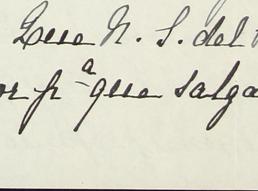 Que N. S. del
or pª que salga